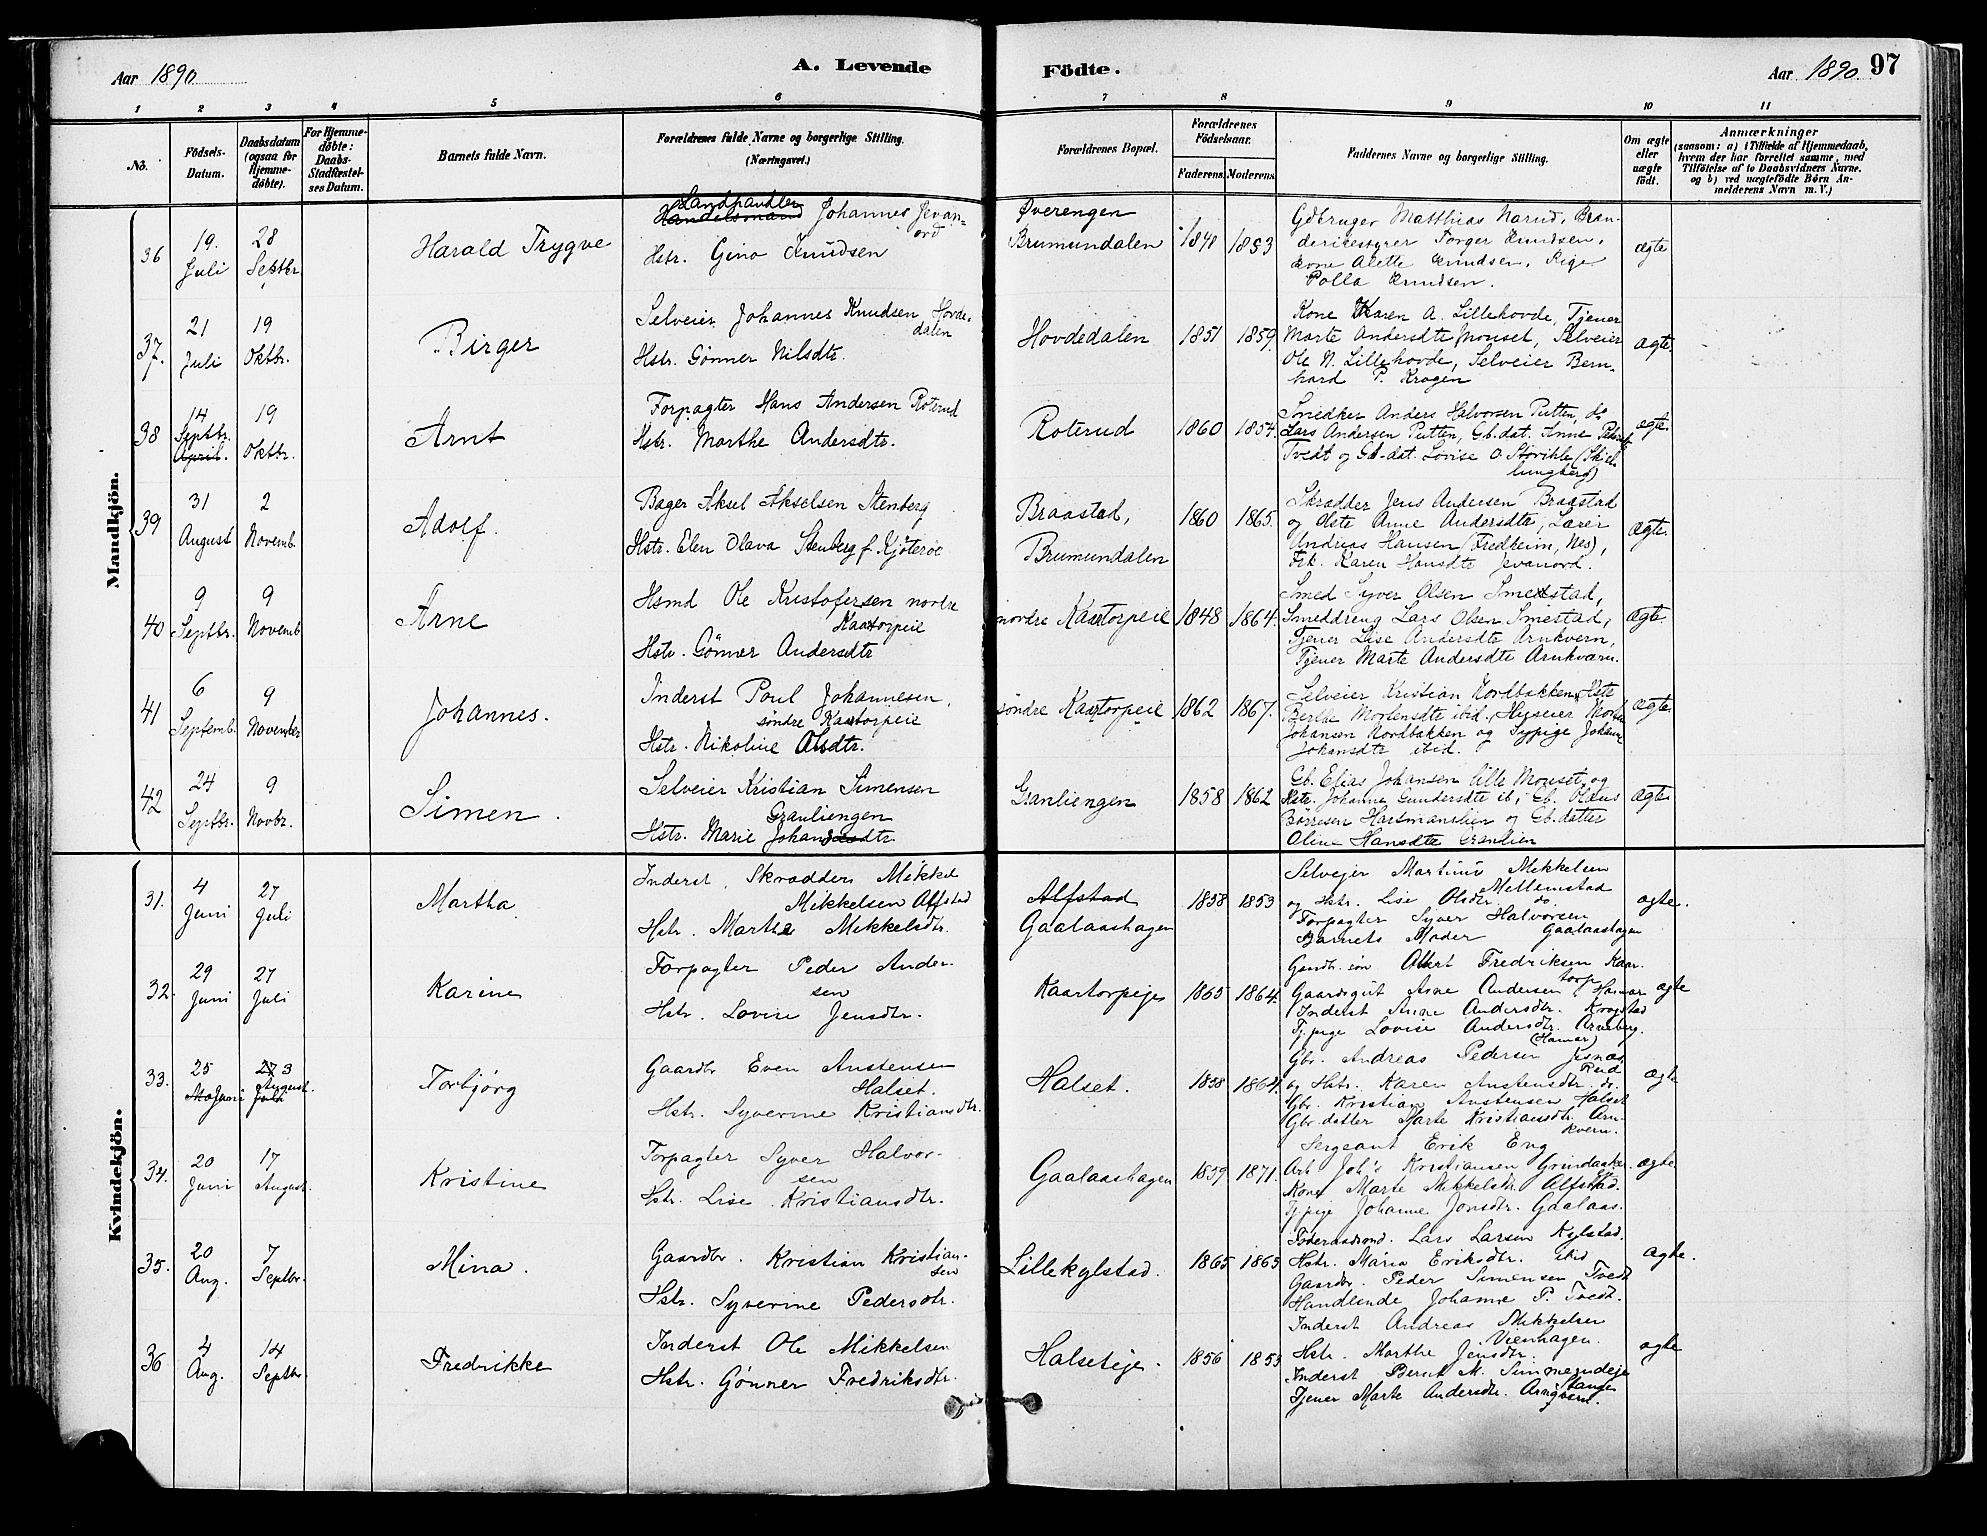 Aar 1890
A. Levende
Födte.
Aar 1890
97
1 2 3 4 5 6 7 8 9 10 11
No.
Födsels-Datum.
Daabsdatum (ogsaa for Hjemme-döbte).
For Hjemme-döbte: Daabs-Stadfæstel-ses Datum.
Barnets fulde Navn.
Forældrenes fulde Navne og borgerlige Stilling. (Næringsvei.)
Forældrenes Bopæl.
Forældrenes Födselsaar.
Faderens. Moderens.
Faddernes Navne og borgerlige Stilling.
Om ægte eller uægte födt.
Anmærkninger
(saasom: a) i Tilfælde af Hjemmedaab,
hvem der har forrettet samme, med
Tilföielse af to Daabsvidners Navne.
og b) ved uægtefödte Börn An-
melderens Navn m. V.)
Mandkjön.
36
19. Juli
28 Septbr
Harald Trygve
Landhandler
Handelsmand Johannes Jevan-
ord
Hstr. Gina Knudsen
Øverengen
Brumundalen
1848
1853
Gdbruger Matthias Narud, Bran-
deribestyrer Torger Knudsen,
Kone Alette Knudsen, Pige
Polla Knudsen.
ægte
37.
21 Juli
19 Oktbr.
Birger
Selveier Johannes Knudsen Hovde-
dalen
Hstr. Gönner Nilsdtr.
Hovdedalen
1851
1859.
Kone Karen A. Lillehovde, Tjener
Marte Andersdtr Monset, Selveier
Ole N. Lillehovde, Selveier Bern-
hard P. Krogen
ægte.
38
14 Septbr. April.
19 Oktbr.
Arnt
Forpagter Hans Andersen Roterud
Hstr. Marthe Andersdtr.
Roterud
1860
1854.
Smedker Anders Halvorsen Putten, do
Lars Andersen Putten, Gb.dat. Anne
Tvedt og Gb.dat. Lovise O.
ægte.
39
31 August
2 Novemb.
Adolf.
Bager Aksel Akselsen Stenberg
Hstr. Elen Olava Stenberg f. Kjöteröe
Braastad,
Brumundalen
1860
1865.
Skrædder Jens Andersen Braastad
og Hste Anne Andersdtr, Lærer
Andreas Hansen (Fredheim, Nes),
Frk. Karen Hansdtr Jevanord.
ægte.
40
9 Septbr.
9 Novemb
Arne
Hsmd Ole Kristofersen nordre
Kaatorpeie
Hstr. Gönner Andersdtr
nordre Kaatorpeie
1848
1864.
Smed Syver Olsen Smestad,
Smeddreng Lars Olsen Smestad,
Tjener Lise Andersdtr Arnkvern,
Tjener Marte Andersdtr Arnkværn.
ægte.
41
6 Septemb.
9 November
Johannes.
Inderst Poul Johannesen,
söndre Kaatorpeie
Hstr. Nikoline Olsdtr.
söndre Kaatorpeie
1862
1867.
Selveier Kristian Nordbakken, Hste
Berthe Mortensdtr ibid., Huseier
Johansen Nordbakken og Sypige Johanne
Johansdtr ibid.
ægte.
42
24 Septbr.
9 Novbr.
Simen.
Selveier Kristian Simensen
Granliengen
Hstr. Marie Johansdtr
Granliengen
1858
1862
Gb. Elias Johansen Lille Monset, og
Hstr. Johanne Gundersdtr ib., Gb. Olaus
Börresen Harsmanslien og Gb.datter
Oline Hansdtr Granlien
ægte
Kvindekjön.
31.
4 Juni
27 Juli
Martha
Inderst, Skrædder Mikkel
Mikkelsen Alfstad
Hstr. Marthe Mikkelsdtr.
Alfstad
Gaalaashagen
1858
1853
Selvejer Martinus Mikkelsen
Mellemstad
og Hstr. Lise Olsdtr. do.
Forpagter Syver Halvorsen
Gaalaashagen
Barnets Moder
ægte.
32.
29 Juni
27 Juli
Karine
Forpagter Peder Ander-
sen
Hstr. Lovise Jensdtr.
Kaatorpeje
1865
1864.
Gaardbr. søn Albert Fredriksen Kaar-
torp
Gaardsgut Arne Andersen, Hamar
Inderst Anne Andersdtr. Krogstad
Tj.pige Lovise Andersdtr. Arneberg.
(Hamar)
ægte
33.
25 Juni
3 August
Torbjørg
Gaardbr Even Anstensen
Halset.
Hstr. Syverine Kristiansdtr.
Halset.
1858
1864.
Gbr. Andreas Pedersen Jesnæs
Rud
og Hstr. Karen Anstensdtr. do.
Gbr. Kristian Anstensen Halset
Gbr.datter Marte Kristiansdtr. Arn-
kvern.
ægte
34.
20 Juni
17 August.
Kristine
Forpagter Syver Halvor-
sen
Hstr. Lise Kristiansdtr.
Gaalaashagen
1859
1871.
Sergeant Erik Eng
Arb. Johs Kristiansen Grindaaker.
Kone Marte Mikkelsdtr. Alfstad.
Tj.pige Johanne Jonsdtr. Gaalaas.
ægte.
35.
20 Aug.
7 Septbr.
Mina.
Gaardbr. Kristian Kristian-
sen
Hstr. Syverine Pedersdtr.
Lillekylstad.
1865
1863
Föderaadsmd. Lars Larsen Kylstad.
Hstr. Maria Eriksdtr. ibid
Gaardbr. Peder Simensen Tvedt
Handlende Johanne P. Tvedt.
ægte.
36
4 Aug.
14 Septbr.
Fredrikke
Inderst Ole Mikkelsen
Hstr. Gönner Fredriksdtr.
Halseteje.
1856
1853
Inderst Andreas Mikkelsen
Vienhagen.
Hstr. Marthe Jensdtr.
Inderst Bernt M. Simmenseje
Stange
Tjener Marte Andersdtr. Arnqvern.
ægte